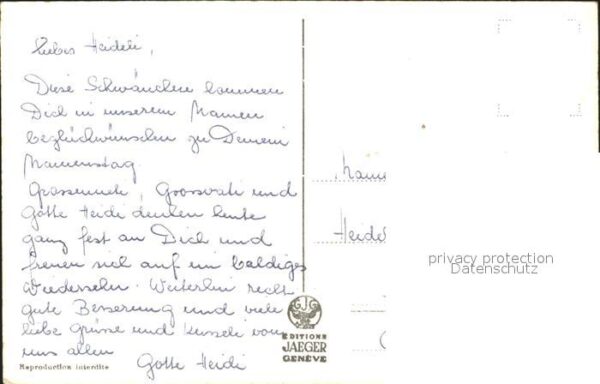 Liebes Heideli,
Diese Schwänchen kommen
Dich in unserem Namen
beglückwünschen zu Deinem
Namenstag
Grossmueti, Grossvati und
Gotte Heidi denken heute
ganz fest an Dich und
freuen sich auf ein baldiges
Wiedersehn. Weiterhin recht
gute Besserung und viele
liebe Grüsse und Kusseli von
uns allen
Gotte Heidi
Reproduction interdite
GJG
EDITIONS
JAEGER
GENÈVE
Heide
privacy protection
Datenschutz